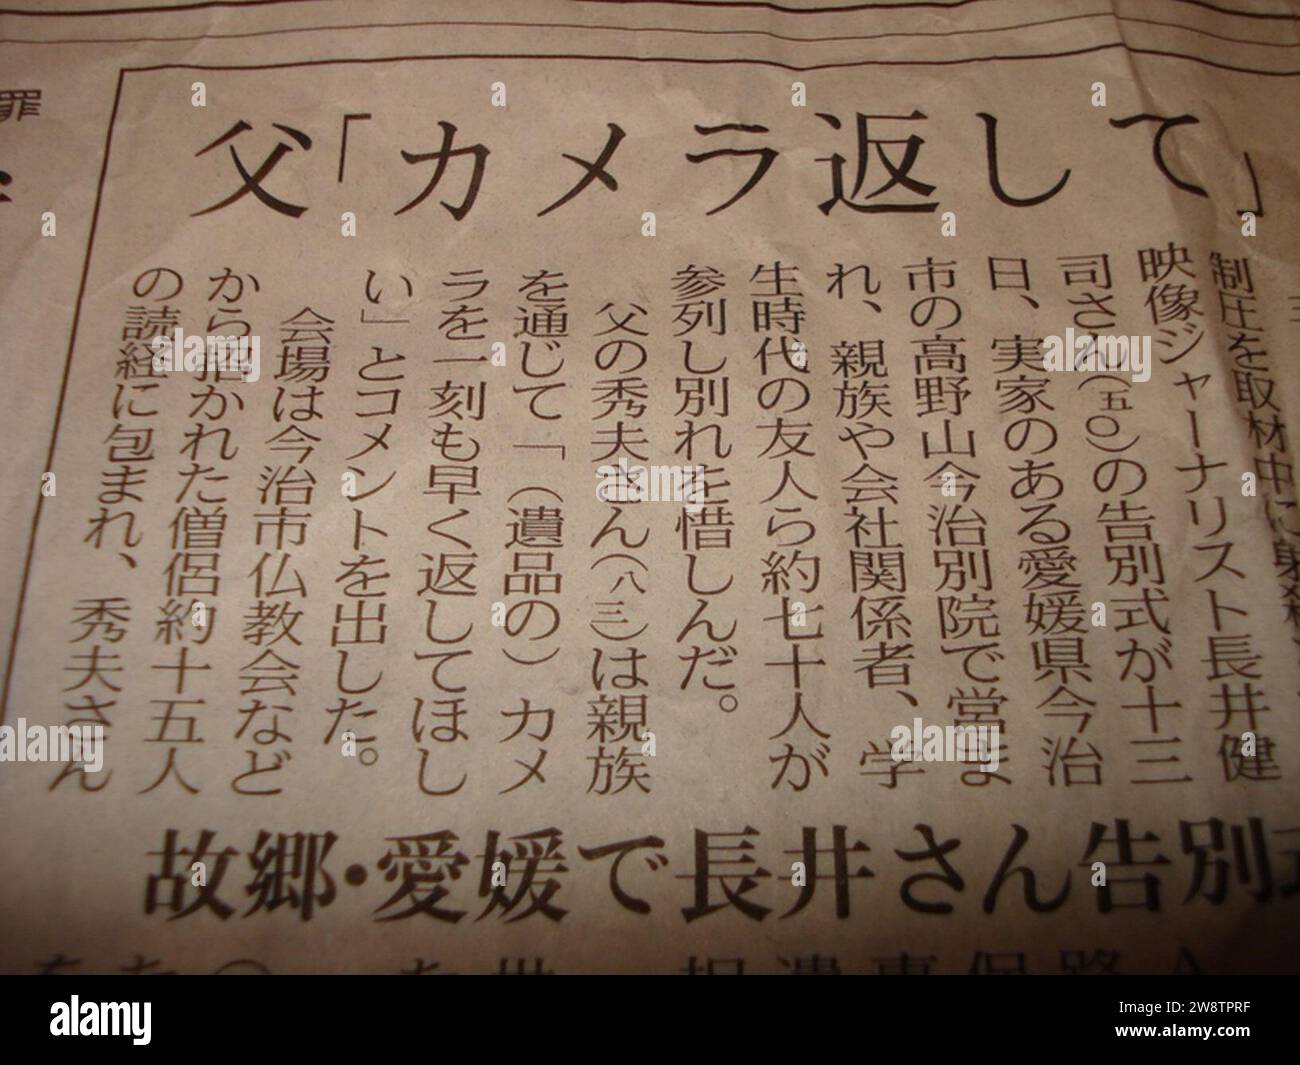 父「カメラ返して」
制圧を取材中に射殺
映像ジャーナリスト長井健
司さん(五〇)の告別式が十三
日、実家のある愛媛県今治
市の高野山今治別院で営ま
れ、親族や会社関係者、学
生時代の友人ら約七十人が
参列し別れを惜しんだ。
父の秀夫さん(八三)は親族
を通じて「(遺品の)カメ
ラを一刻も早く返してほし
い」とコメントを出した。
会場は今治市仏教会など
から招かれた僧侶約十五人
の読経に包まれ、秀夫さん
故郷・愛媛で長井さん告別式
罪
alamy
Image ID: 2W8TPRF
www.alamy.com